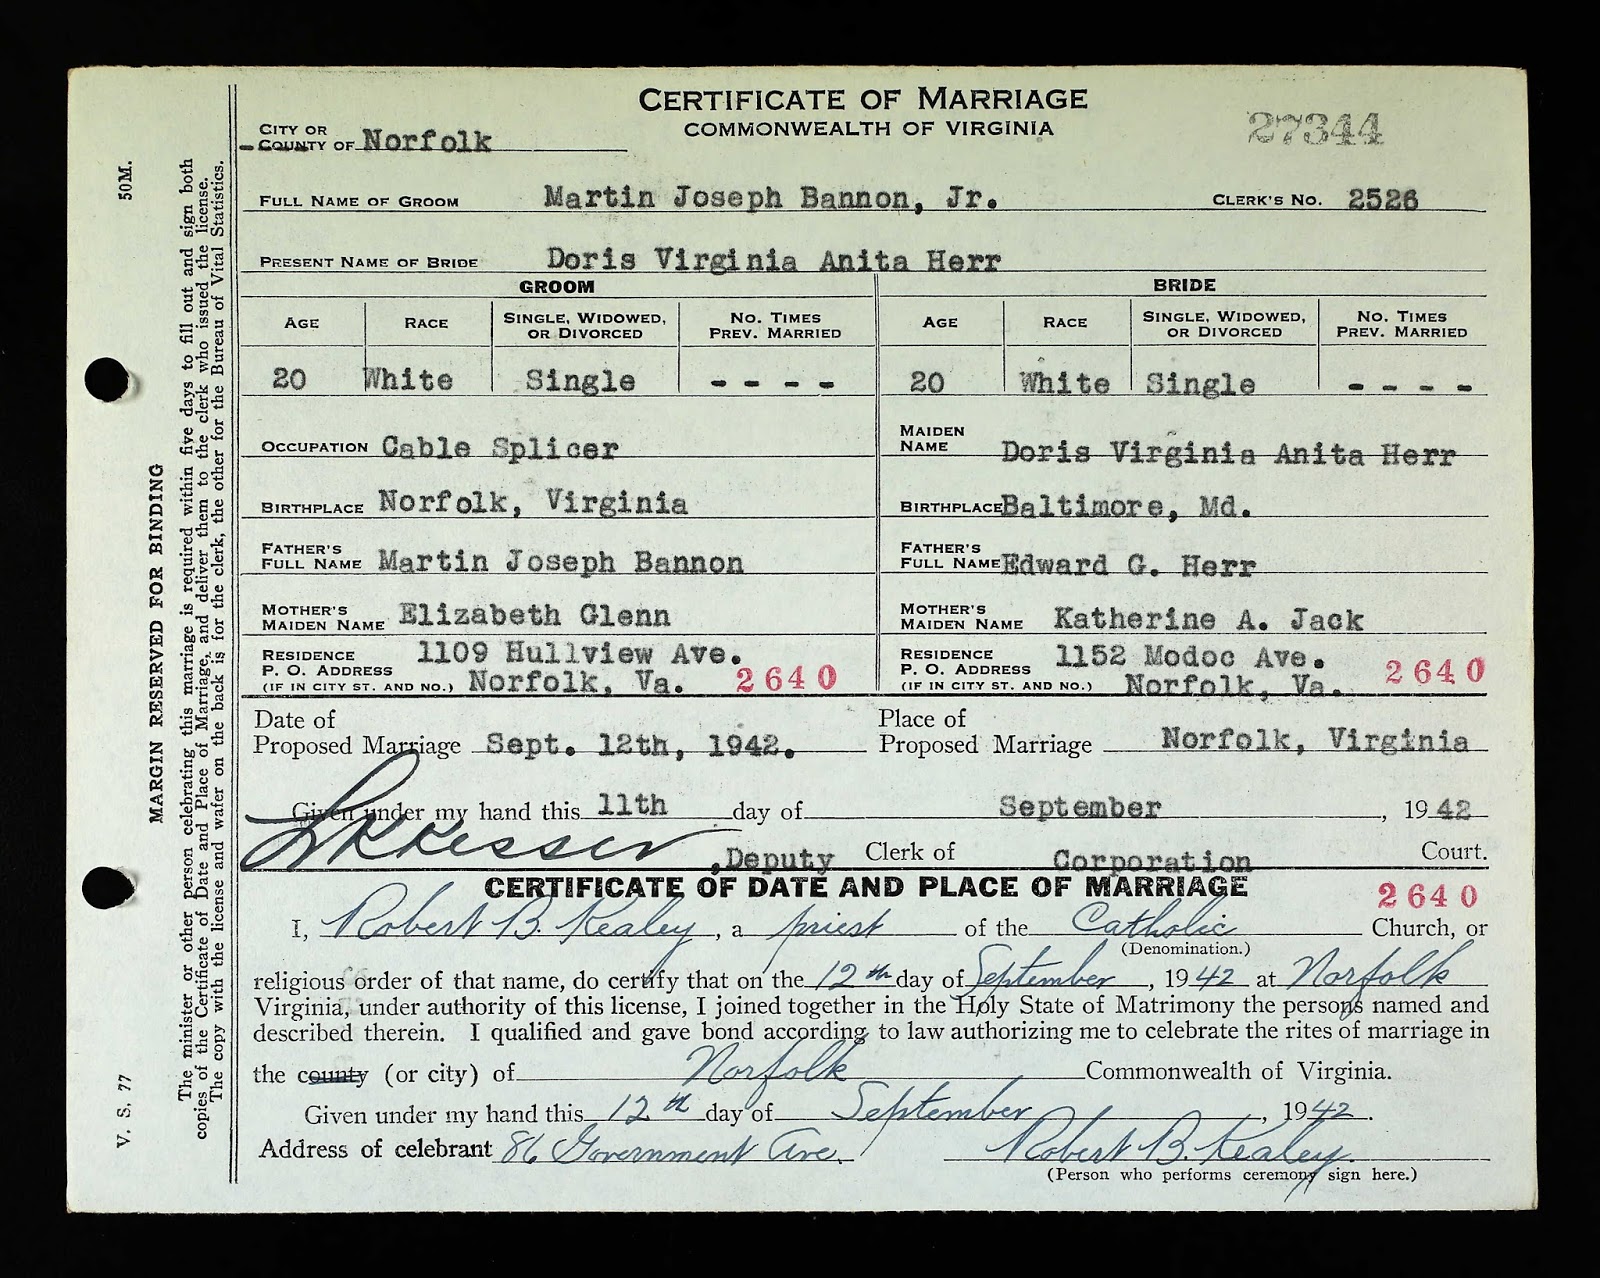 CERTIFICATE OF MARRIAGE
COMMONWEALTH OF VIRGINIA
27344
CITY OR
COUNTY OF Norfolk
FULL NAME OF GROOM Martin Joseph Bannon, Jr. CLERK'S No. 2526
PRESENT NAME OF BRIDE Doris Virginia Anita Herr
GROOM BRIDE
AGE RACE SINGLE, WIDOWED, OR DIVORCED NO. TIMES PREV. MARRIED AGE RACE SINGLE, WIDOWED, OR DIVORCED NO. TIMES PREV. MARRIED
20 White Single - - - - 20 White Single - - - -
OCCUPATION Cable Splicer MAIDEN NAME Doris Virginia Anita Herr
BIRTHPLACE Norfolk, Virginia BIRTHPLACE Baltimore, Md.
FATHER'S FULL NAME Martin Joseph Bannon FATHER'S FULL NAME Edward G. Herr
MOTHER'S MAIDEN NAME Elizabeth Glenn MOTHER'S MAIDEN NAME Katherine A. Jack
RESIDENCE 1109 Hullview Ave. RESIDENCE 1152 Modoc Ave.
P. O. ADDRESS
(IF IN CITY ST. AND NO.) Norfolk, Va. 2640 P. O. ADDRESS
(IF IN CITY ST. AND NO.) Norfolk, Va. 2640
Date of Proposed Marriage Sept. 12th, 1942. Place of Proposed Marriage Norfolk, Virginia
Given under my hand this 11th day of September, 1942
, Deputy Clerk of Corporation Court.
CERTIFICATE OF DATE AND PLACE OF MARRIAGE 2640
I, Robert B. Kealey, a priest of the Catholic Church, or
(Denomination.)
religious order of that name, do certify that on the 12th day of September, 1942 at Norfolk
Virginia, under authority of this license, I joined together in the Holy State of Matrimony the persons named and
described therein. I qualified and gave bond according to law authorizing me to celebrate the rites of marriage in
the county (or city) of Norfolk Commonwealth of Virginia.
Given under my hand this 12th day of September, 1942.
Address of celebrant 86 Government Ave. Robert B. Kealey
(Person who performs ceremony sign here.)
V. S. 77 MARGIN RESERVED FOR BINDING 50M.
The minister or other person celebrating this marriage is required within five days to fill out and sign both
copies of the Certificate of Date and Place of Marriage, and deliver them to the clerk who issued the license.
The copy with the license and wafer on the back is for the clerk, the other for the Bureau of Vital Statistics.